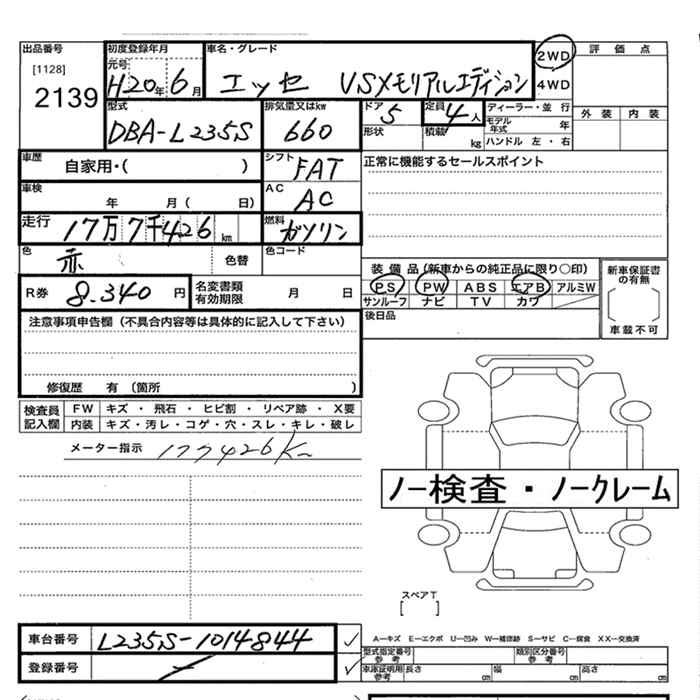 出品番号 初度登録年月 車名・グレード 2WD 評価点
[1128] 元号
2139 H20年6月 エッセ VSメモリアルエディション 4WD
型式 排気量又はkw ドア 定員 ディーラー・並行 外装 内装
DBA-L235S 660 5 4人 モデル年式 年
形状 積載 kg ハンドル 左・右
車歴 自家用・( ) シフト FAT 正常に機能するセールスポイント
車検 年 月( 日) AC AC
走行 17万7千426km 燃料 ガソリン
色 赤 色替 色コード
装備品(新車からの純正品に限り○印) 新車保証書の有無
R券 8.340円 名変書類有効期限 月 日 PS PW ABS エアB アルミW
サンルーフ ナビ TV カワ
注意事項申告欄(不具合内容等は具体的に記入して下さい) 後日品 車載不可
修復歴 有(箇所 )
検査員記入欄 FW キズ・飛石・ヒビ割・リペア跡・X要
内装 キズ・汚レ・コゲ・穴・スレ・キレ・破レ
メーター指示 177426K
ノー検査・ノークレーム
スペアT
[ ]
車台番号 L235S-1014844 A−キズ E−エクボ U−凹み W−補修跡 S−サビ C−腐食 XX−交換済
登録番号 型式指定番号参考 類別区分番号参考
車庫証明用参考 長さ cm 幅 cm 高さ cm